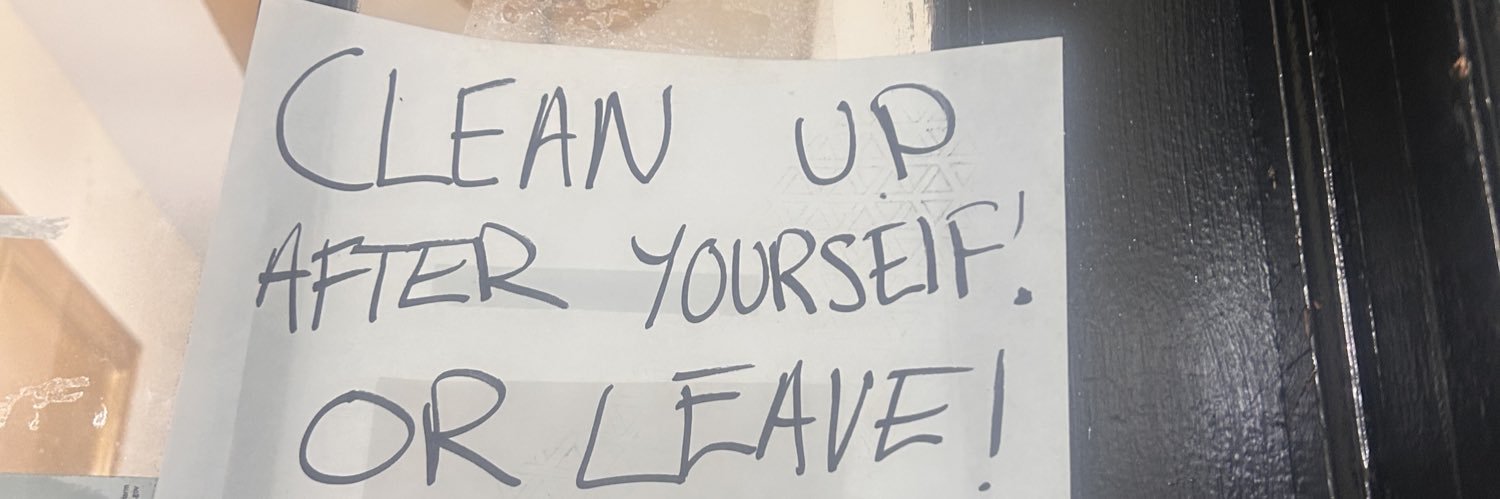 CLEAN UP
AFTER YOURSELF!
OR LEAVE!